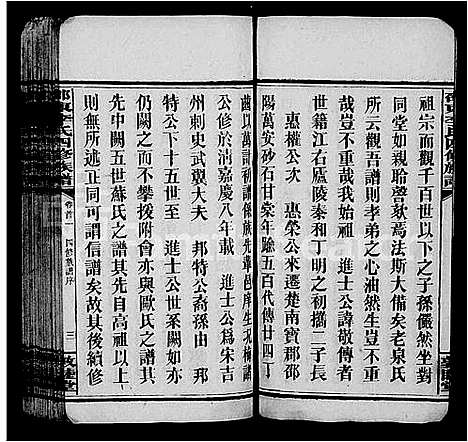 祖宗而觀千百世以之子孫儼然坐對
同堂如親聆謦欬焉法斯大備矣老泉氏
所云觀吾譜則孝弟之心油然生豈不重
哉豈不重哉我始祖 進士公諱敬傳者
世籍江右廬陵泰和丁明之初攜二子長
惠權公次 惠榮公來遷楚南寶郡邵
陽萬安砂石甘棠年賒五百代傳廿四丁
齒以
公修於清嘉慶八年載 進士公爲宋吉
州刺史武翼大夫 邦特公裔孫由 邦
特公下十五世至 進士公世系闕如亦
仍闕之而不攀援附會亦與歐氏之譜其
先中闕五世蘇氏之譜其先自高祖以上
則無所述正同可謂信譜矣故其後續修
邵東李氏四修族譜
卷首
四修族譜序
三
敦睦堂